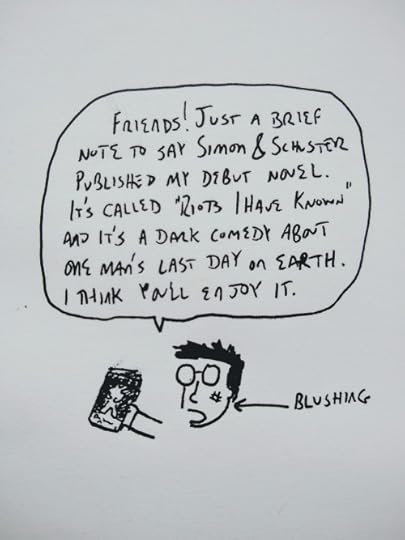 FRIENDS! JUST A BRIEF
NOTE TO SAY SIMON & SCHUSTER
PUBLISHED MY DEBUT NOVEL.
IT'S CALLED "RIOTS I HAVE KNOWN"
AND IT'S A DARK COMEDY ABOUT
ONE MAN'S LAST DAY ON EARTH.
I THINK YOU'LL ENJOY IT.
BLUSHING